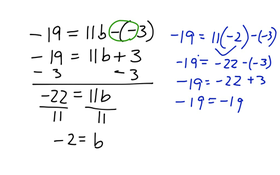 -19 = 11b -(-3)
-19 = 11b + 3
-3 -3
-22 = 11b
11 11
-2 = b
-19 = 11(-2) -(-3)
-19 = -22 -(-3)
-19 = -22 + 3
-19 = -19